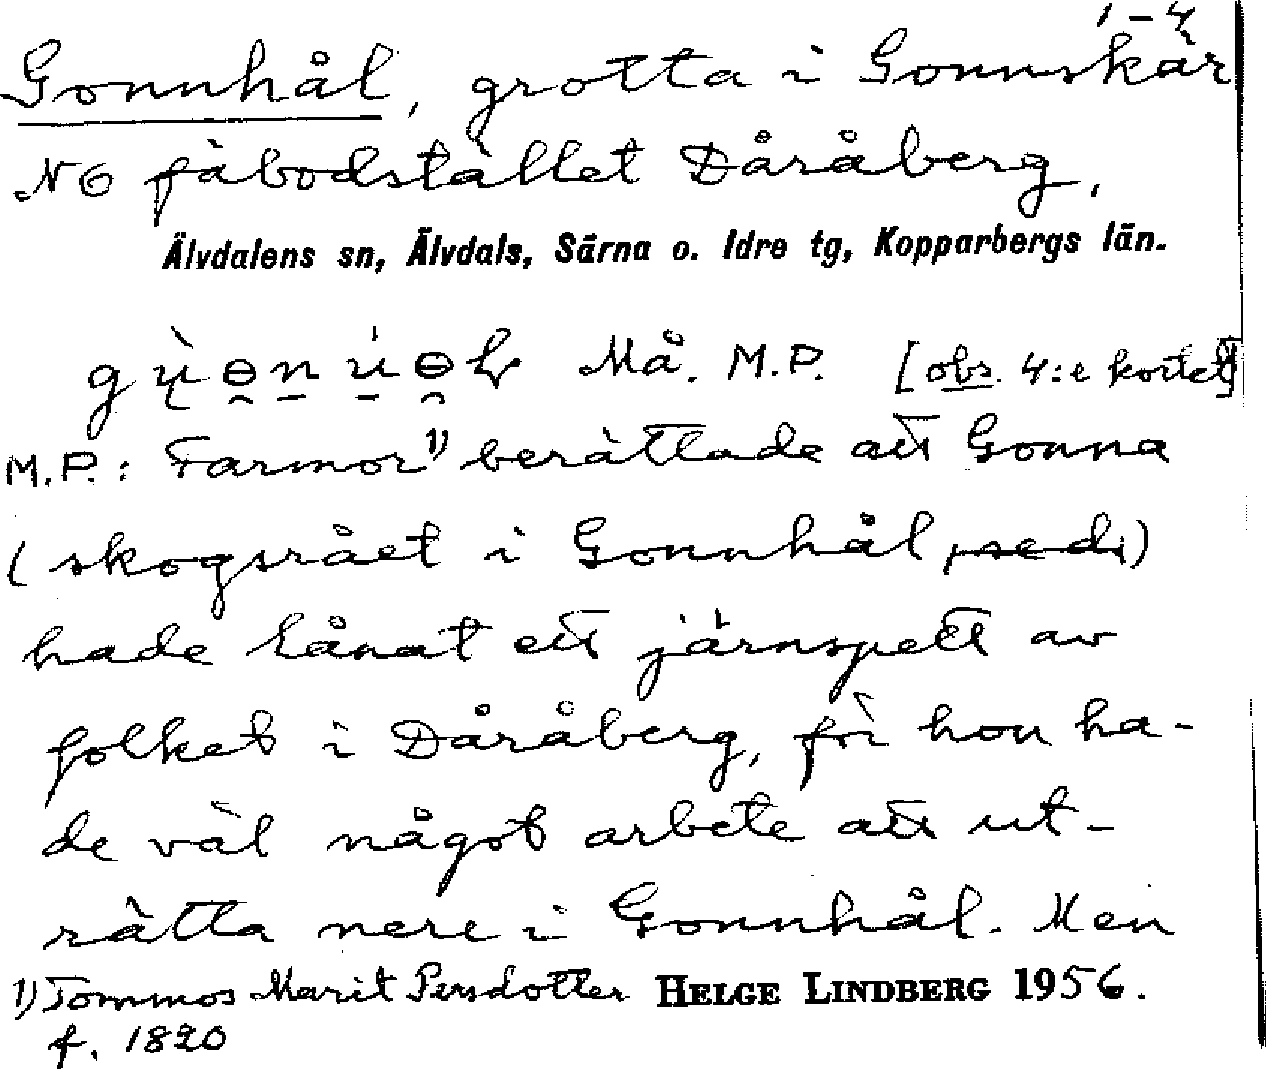 1-4
Gonnhål, grotta i Gonnskär
NO fäbodstället Dåråberg,
Älvdalens sn, Älvdals, Särna o. Idre tg, Kopparbergs län.
Må. M.P. [obs. 4:e kortet]
M.P.: Farmor 1) berättade att Gonna
(skogsrået i Gonnhål)
hade lånat ett järnspett av
folket i Dåråberg, för hon ha-
de väl något arbete att ut-
rätta nere i Gonnhål. Men
1) Tommos Marit Persdotter HELGE LINDBERG 1956.
f. 1820